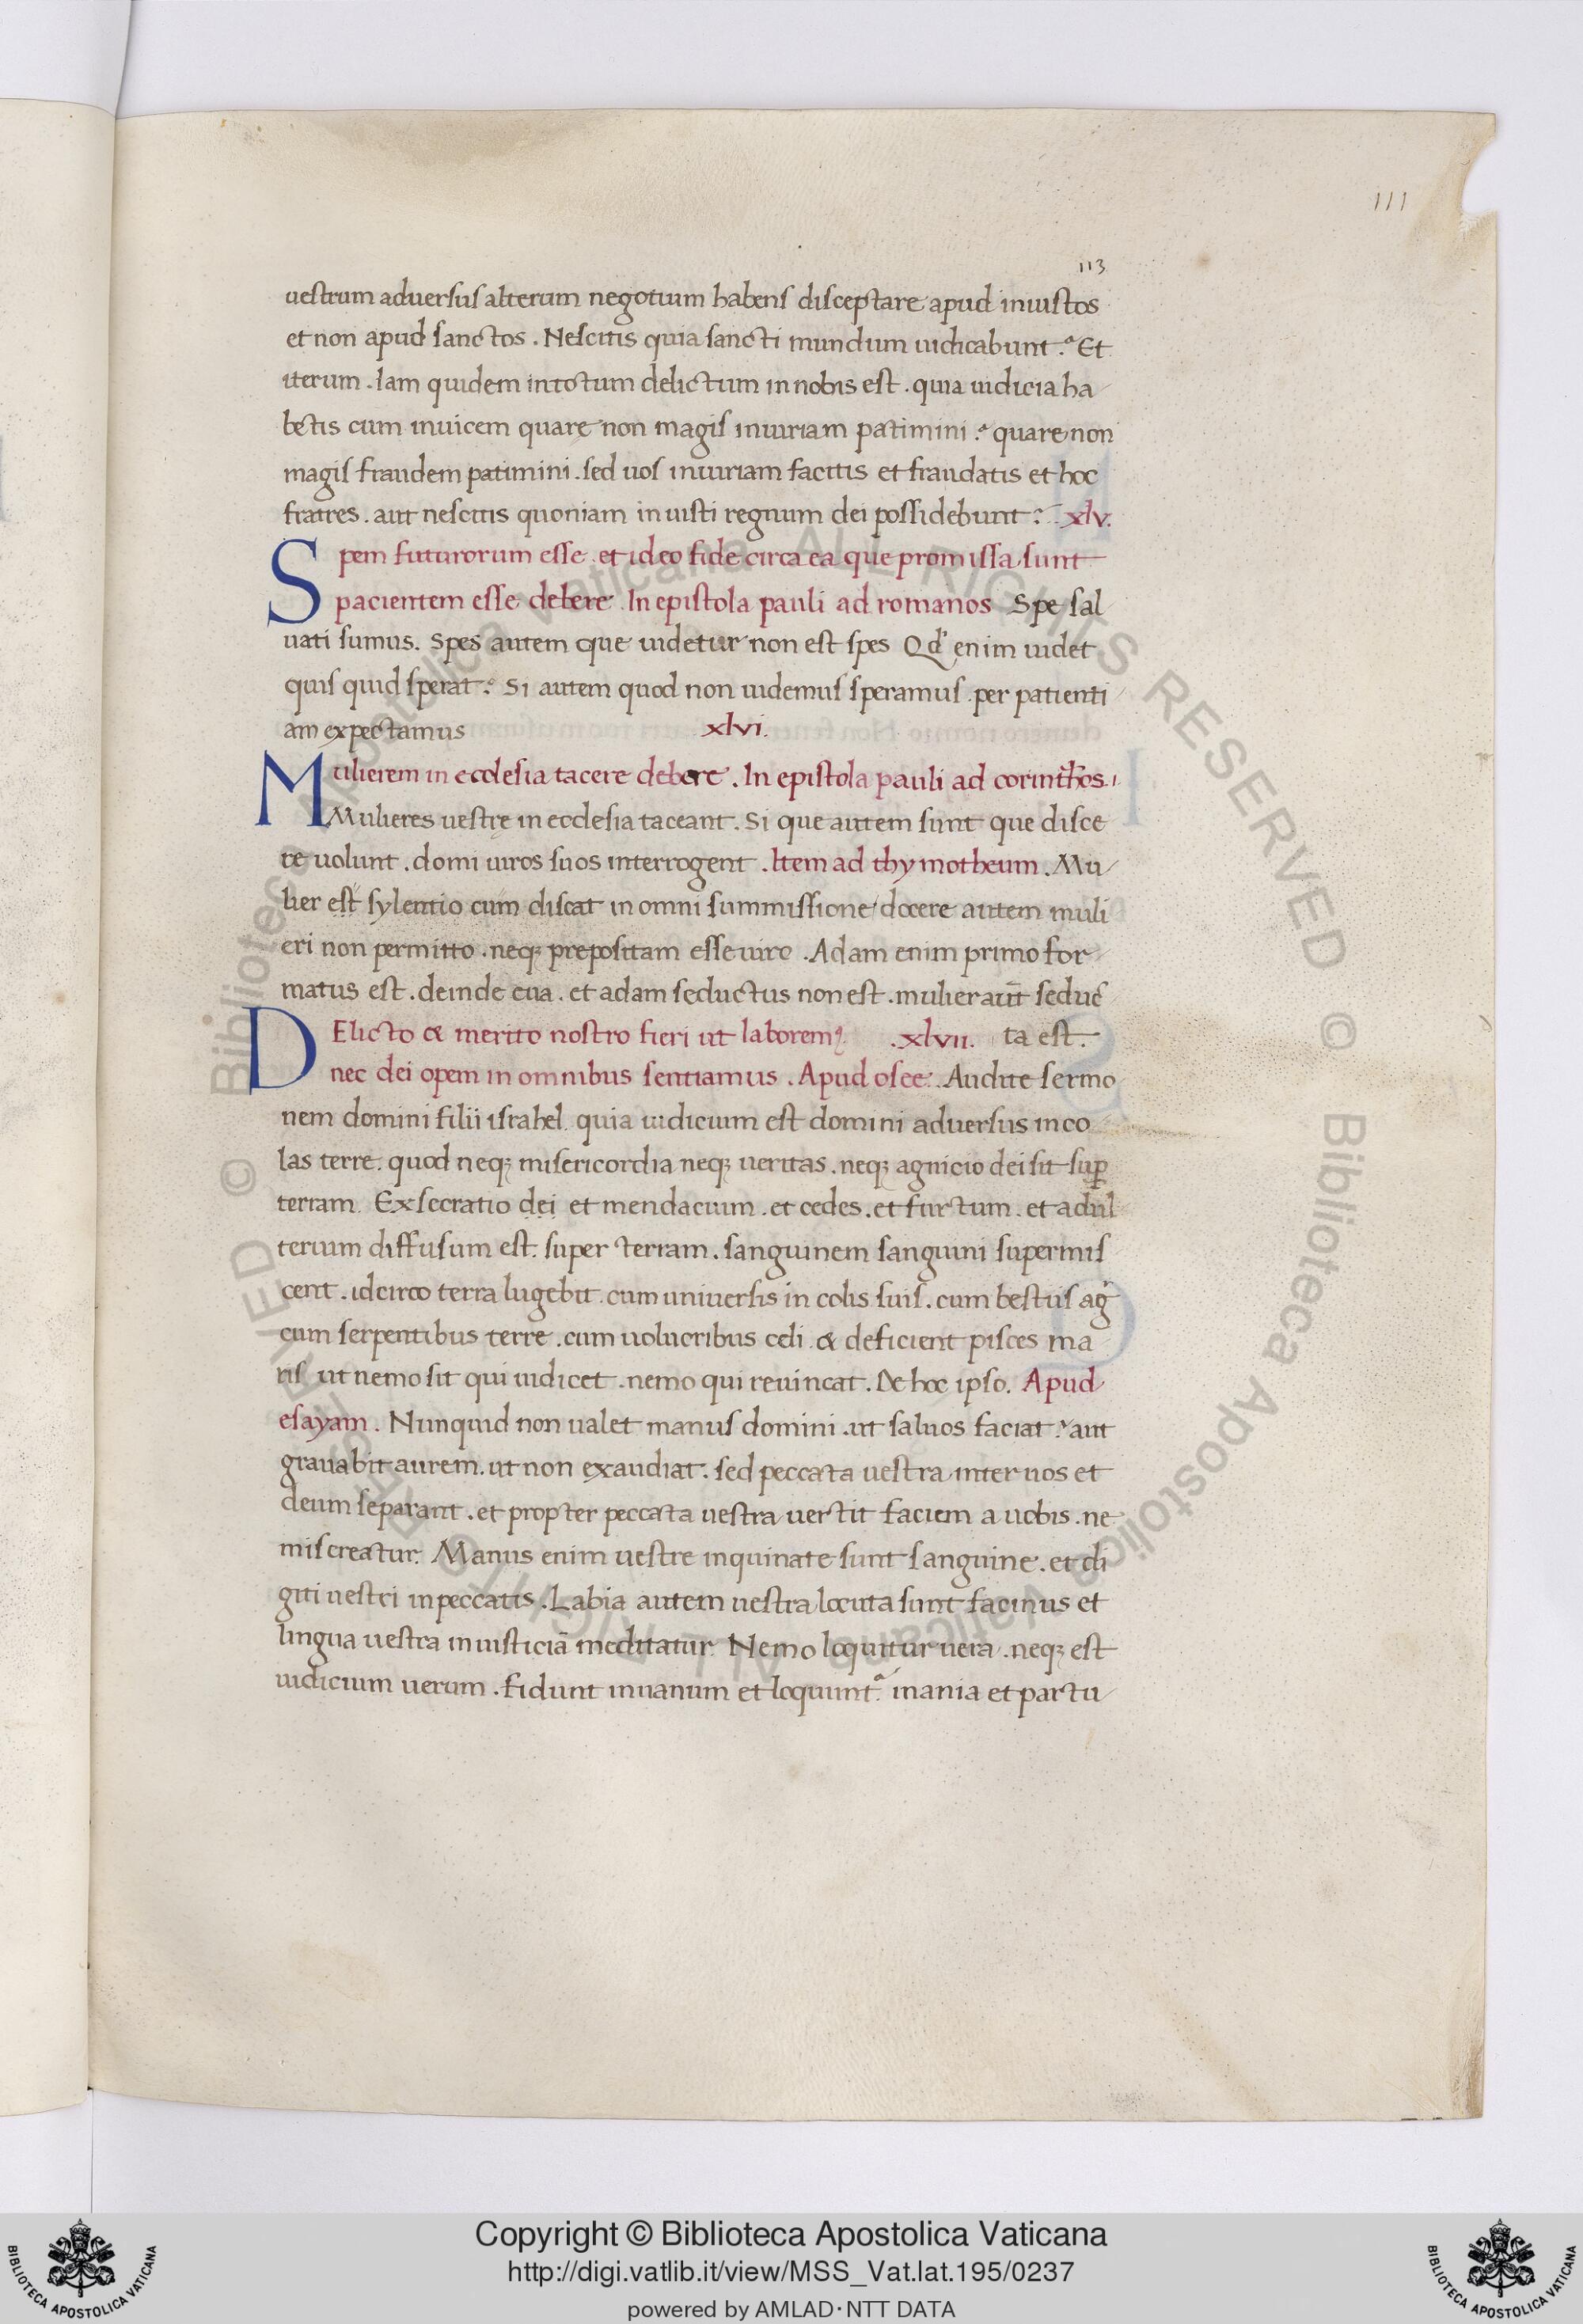 111
113
uestrum aduersus alterum negotium habens disceptare apud iniustos
et non apud sanctos . Nescitis quia sancti mundum iudicabunt ? Et
iterum . Iam quidem in totum delictum in nobis est . quia iudicia ha
betis cum inuicem quare non magis iniuriam patimini ? quare non
magis fraudem patimini . sed uos iniuriam facitis et fraudatis et hoc
fratres . aut nescitis quoniam iniusti regnum dei possidebunt ? xlv.
Spem futurorum esse . et ideo fide circa ea que promissa sunt
pacientem esse debere . In epistola pauli ad romanos Spe sal
uati sumus. Spes autem que uidetur non est spes Qd' enim uidet
quis quid sperat ? Si autem quod non uidemus speramus . per patienti
am expectamus xlvi.
Mulierem in ecclesia tacere debere . In epistola pauli ad corinthos .i.
Mulieres uestrę in ecclesia taceant . Si que autem sunt que disce
re uolunt . domi uiros suos interrogent . Item ad thymotheum . Mu
lier est sylentio cum discat in omni summissione docere autem muli
eri non permitto . neq; prepositam esse uiro . Adam enim primo for
matus est . deinde eua . et adam seductus non est . mulier aut̄ seduc
DElicto & merito nostro fieri ut laborem9 . xlvii. ta est .
nec dei opem in omnibus sentiamus . Apud osee . Audite sermo
nem domini filii israhel quia iudicium est domini aduersus inco
las terre . quod neq; misericordia neq; ueritas . neq; agnicio dei sit suꝑ
terram Exsecratio dei et mendacium . et cedes . et furtum . et adul
terium diffusum est . super terram . sanguinem sanguini supermis
cent . idcirco terra lugebit . cum uniuersis incolis suis . cum bestiis agi
cum serpentibus terre . cum uolucribus celi . & deficient pisces ma
ris ut nemo sit qui iudicet . nemo qui reuincat . De hoc ipso . Apud
esayam . Nunquid non ualet manus domini . ut saluos faciat ? aut
grauabit aurem . ut non exaudiat . sed peccata uestra inter uos et
deum separant . et propter peccata uestra uertit faciem a uobis . ne
miscreatur . Manus enim uestre inquinate sunt sanguine . et di
giti uestri in peccatis . Labia autem uestra locuta sunt facinus et
lingua uestra iniusticiā meditatur Nemo loquitur uera . neq; est
iudicium uerum . fidunt in uanum et loquunt̉ inania et partu
© Biblioteca Apostolica Vaticana ALL RIGHTS RESERVED © Biblioteca Apostolica Vaticana ALL RIGHTS RESERVED
Copyright © Biblioteca Apostolica Vaticana
http://digi.vatlib.it/view/MSS_Vat.lat.195/0237
powered by AMLAD·NTT DATA
BIBLIOTECA APOSTOLICA VATICANA
BIBLIOTECA APOSTOLICA VATICANA